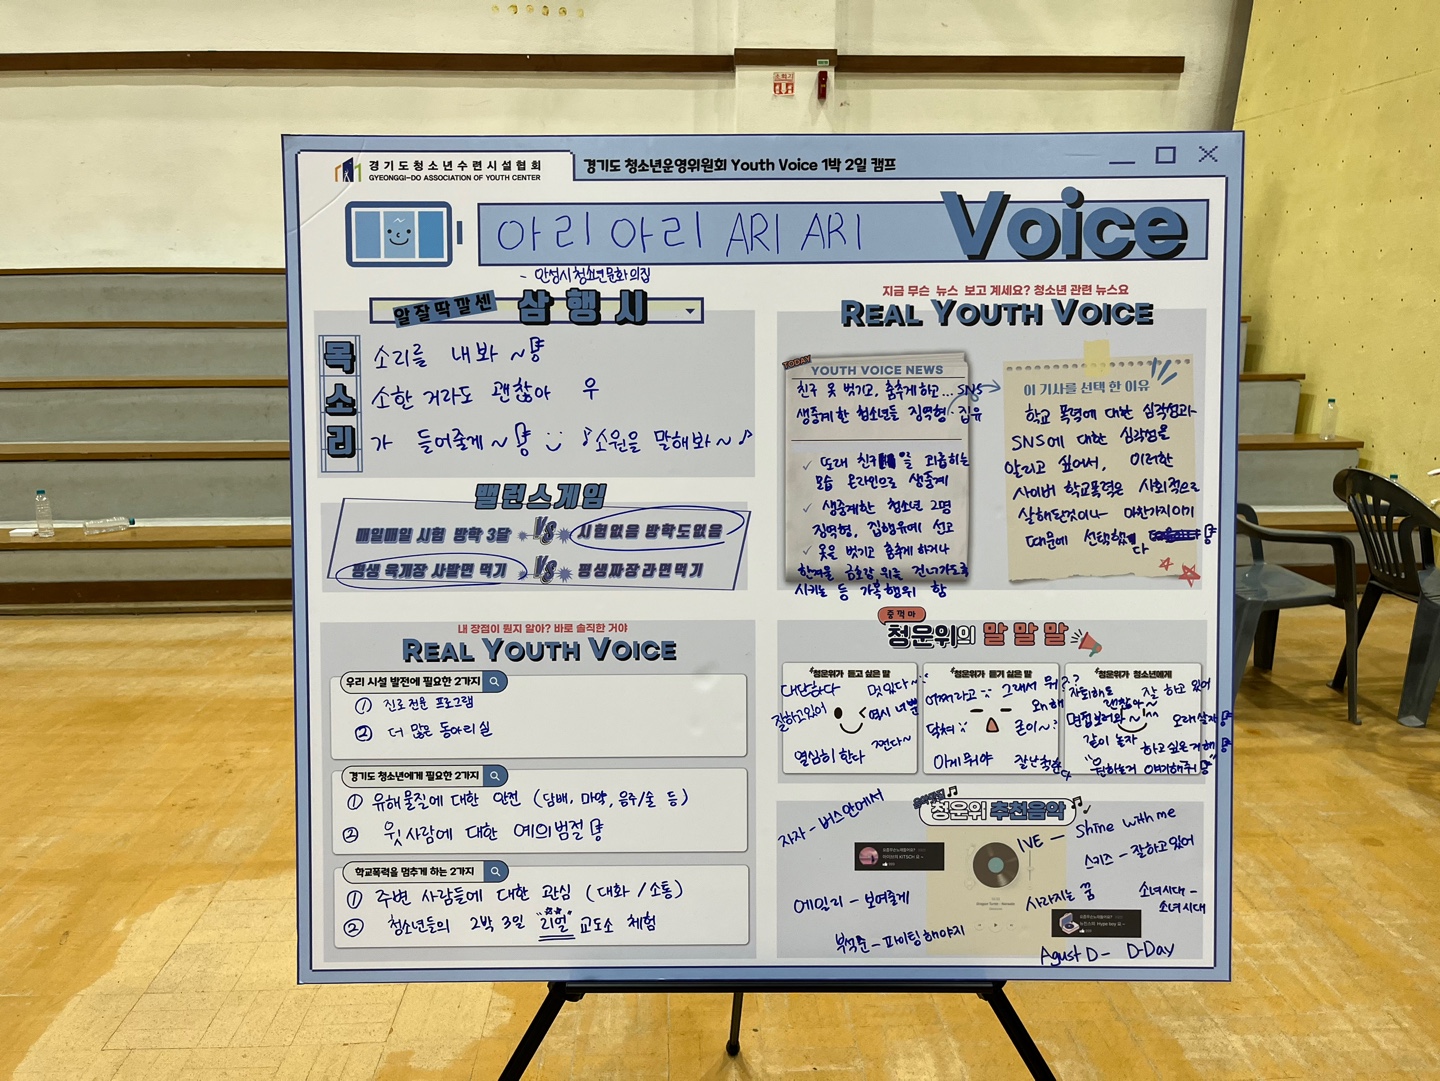 경기도청소년수련시설협회
GYEONGGI-DO ASSOCIATION OF YOUTH CENTER
경기도 청소년운영위원회 Youth Voice 1박 2일 캠프
아리아리 ARI ARI
Voice
- 안성시청소년문화의집
알잘딱깔센 삼행시
목 소리를 내봐 ~
소 소한 거라도 괜찮아 우
리 가 들어줄게 ~ ♪소원을 말해봐~♪
밸런스게임
매일매일 시험 방학 3달 VS 시험없음 방학도없음
평생 육개장 사발면 먹기 VS 평생짜장라면먹기
내 장점이 뭔지 알아? 바로 솔직한 거야
REAL YOUTH VOICE
우리 시설 발전에 필요한 2가지
① 진로전문 프로그램
② 더 많은 동아리실
경기도 청소년에게 필요한 2가지
① 유해물질에 대한 안전 (담배, 마약, 음주/술 등)
② 윗사람에 대한 예의범절
학교폭력을 멈추게 하는 2가지
① 주변 사람들에 대한 관심 (대화/소통)
② 청소년들의 2박 3일 "리얼" 교도소 체험
지금 무슨 뉴스 보고 계세요? 청소년 관련 뉴스요
REAL YOUTH VOICE
TODAY
YOUTH VOICE NEWS
친구 옷 벗기고, 춤추게하고... SNS
생중계한 청소년들 징역형·집유
✓ 또래 친구 일 괴롭히는
모습 온라인으로 생중계
✓ 생중계한 청소년 2명
징역형, 집행유예 선고
✓ 옷을 벗기고 춤추게 하거나
한겨울 금호강 위를 건너가도록
시키는 등 가혹행위 함
이 기사를 선택한 이유
학교 폭력에 대한 심각성과
SNS에 대한 심각성을
알리고 싶어서, 이러한
사이버 학교폭력은 사회적으로
살해된것이나 마찬가지이기
때문에 선택했다
중꺾마
청운위의 말 말 말
청운위가 듣고 싶은 말
대단하다
멋있다~
잘하고있어
역시 너뿐
열심히 한다
쩐다~
청운위가 듣기 싫은 말
어쩌라고
그래서 뭐
왜해
닥쳐
굳이~?
아 게 뭐야
청운위가 청소년에게
자퇴해도 괜찮아~
잘 하고 있어
면접보러와~
오래살자
같이 놀자
하고싶은거해
"원하는거 얘기해줘"
청운위 추천음악
자자 - 버스안에서
IVE - Shine with me
스키즈 - 잘하고있어
에일리 - 보여줄게
사라지는 꿈
소녀시대 -
소녀시대
부석순 - 파이팅해야지
Agust D - D-Day